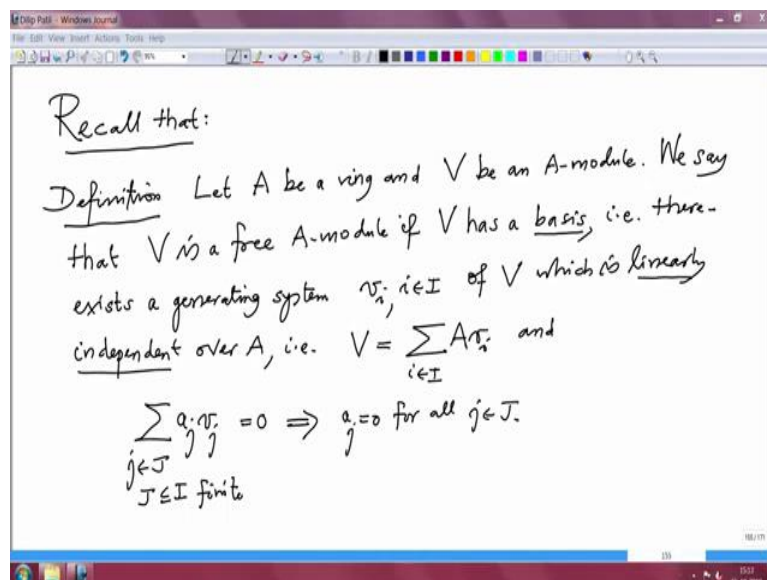 Dilip Patil - Windows Journal
File Edit View Insert Actions Tools Help
Recall that:
Definition Let A be a ring and V be an A-module. We say
that V is a free A-module if V has a basis, i.e. there-
exists a generating system v_i, i∈I of V which is linearly
independent over A, i.e. V = ∑_{i∈I} Av_i and
∑_{j∈J} a_j v_j = 0 ⟹ a_j = 0 for all j∈J.
J⊆I finite
155